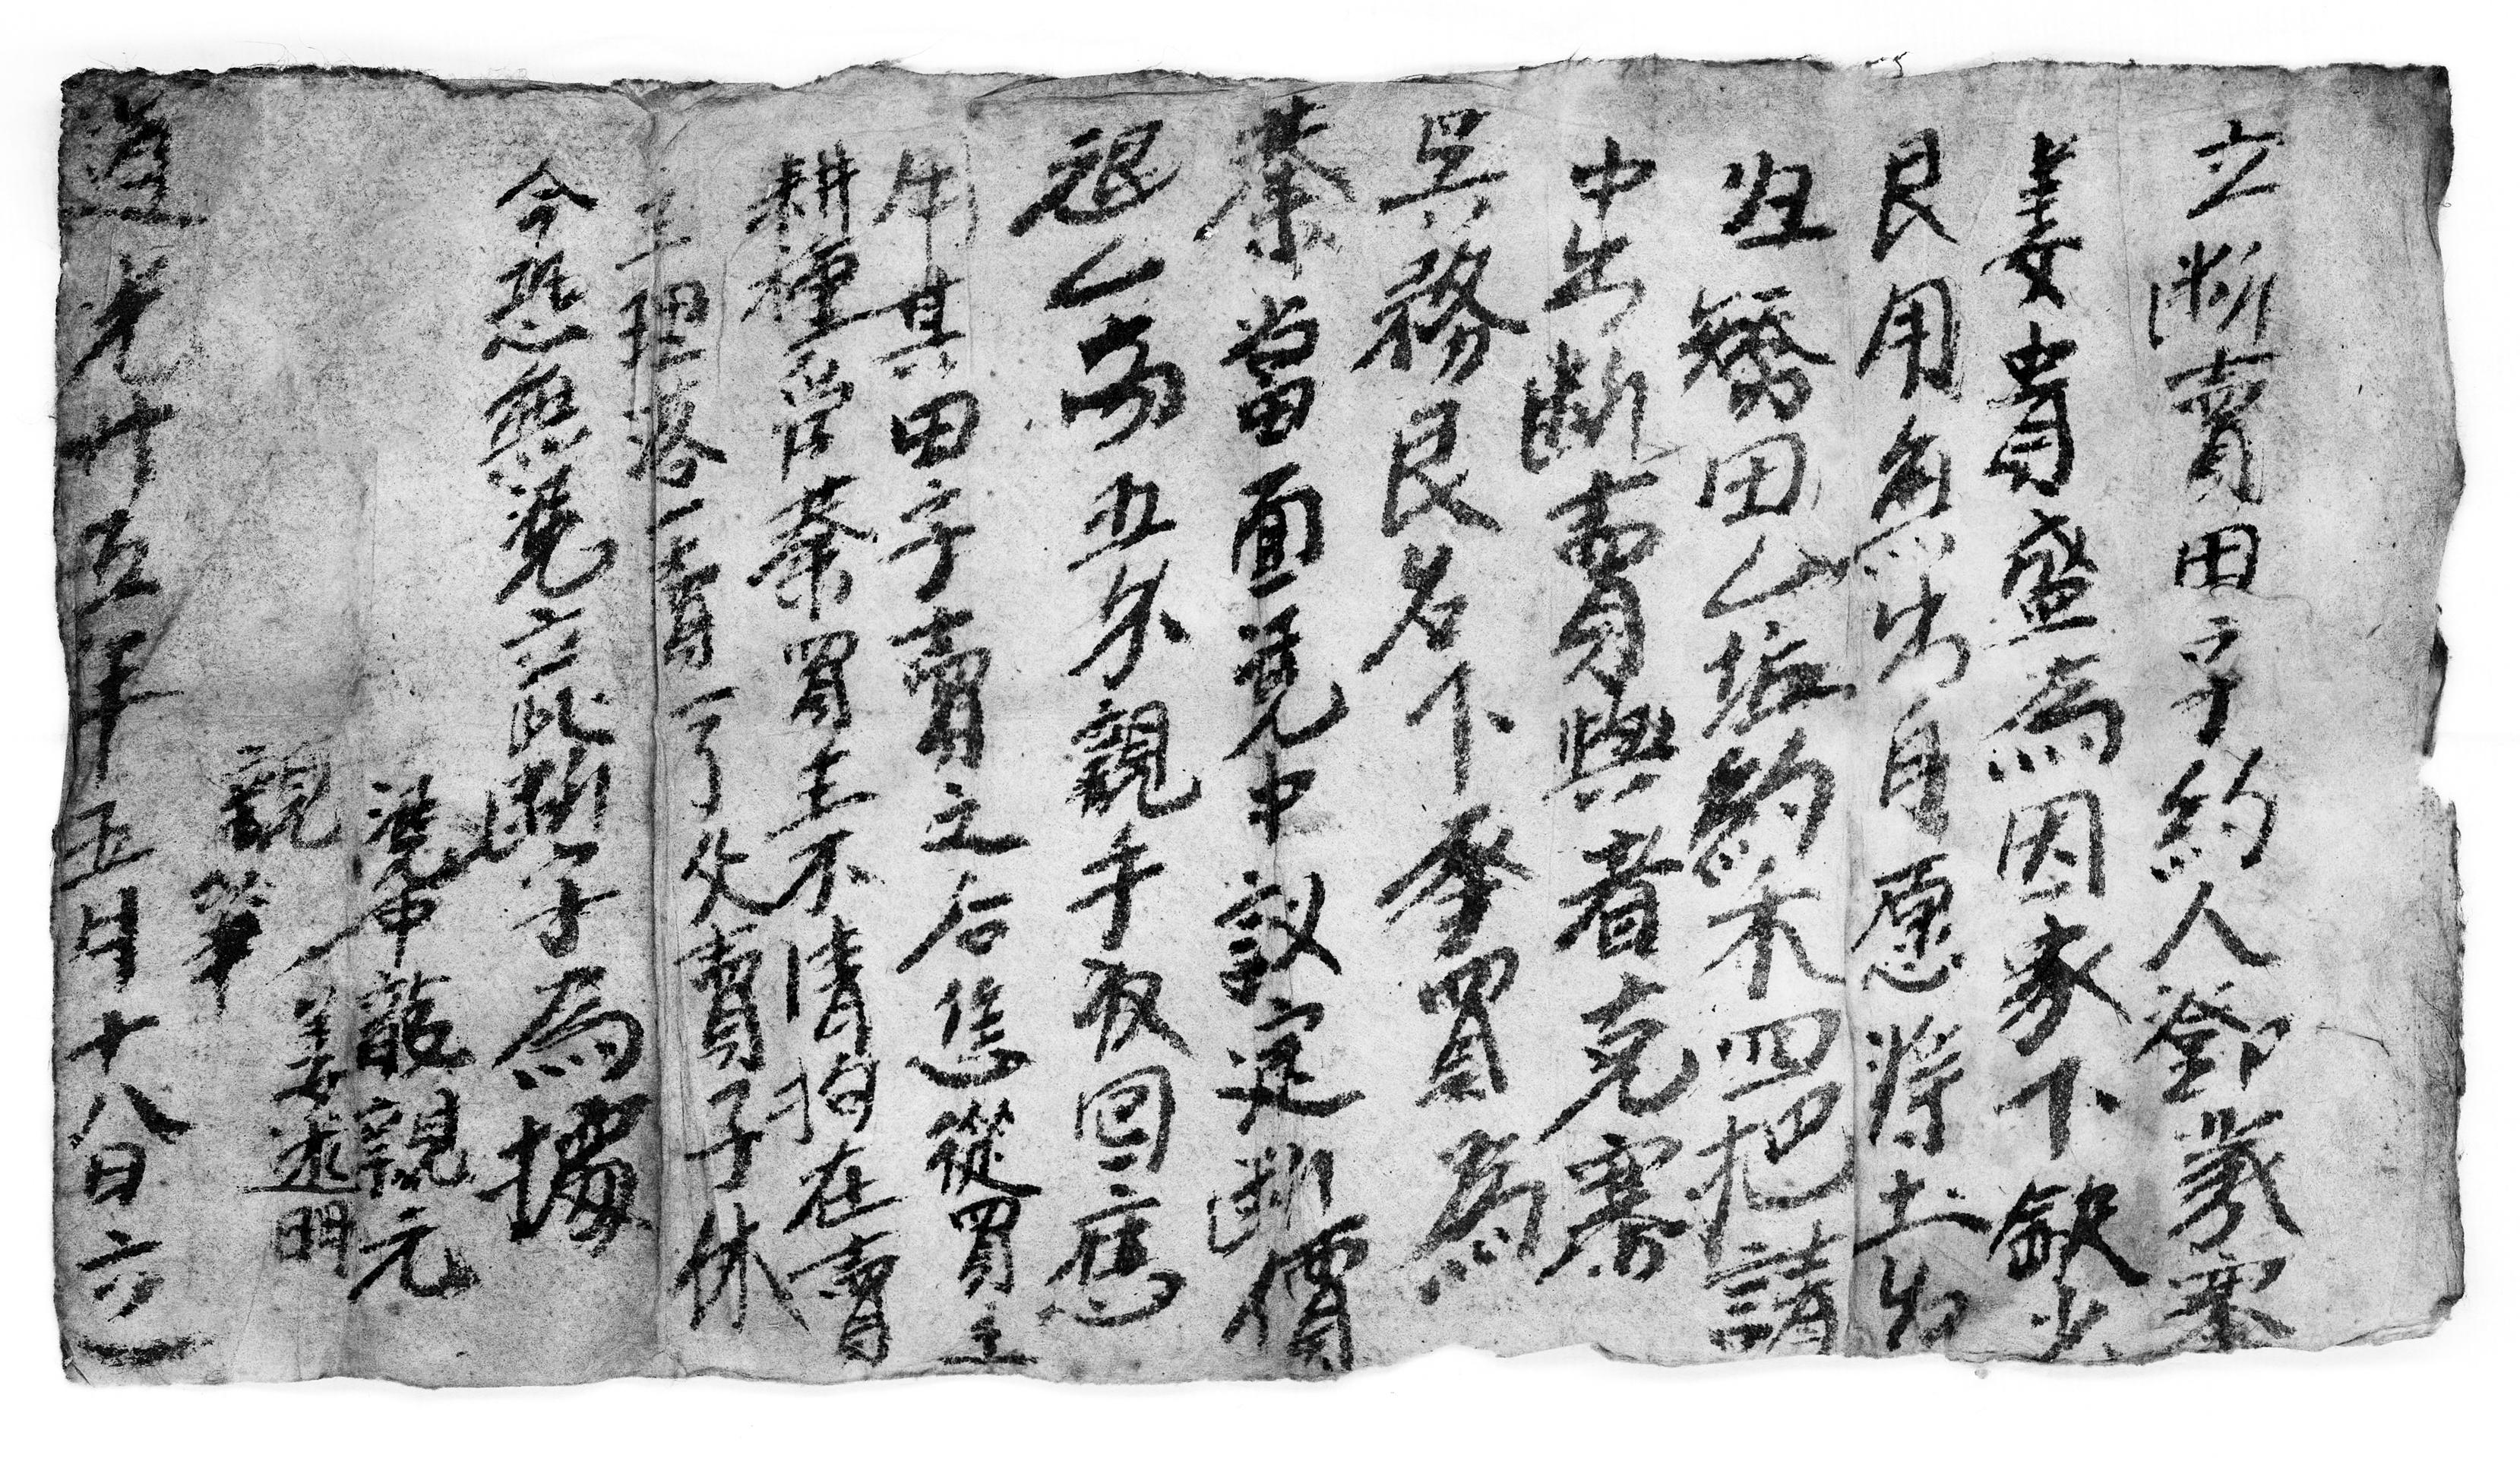 立断賣田字約人鄧義寨
姜貴盛為因家下缺少
艮用無出自愿將土名
田乙坵約禾四把請
中出断賣與者克寨
吳務艮名下承買為
業當面凴中議定断價
乙両五分親手收回應
用其田字賣之后恁從買主
耕種管業買主不清拘在賣
主理落一賣一了父賣子休
今恐無凴立此断字為據
凴中龍親元
姜述明
親筆
道光廿五年五月十八日立